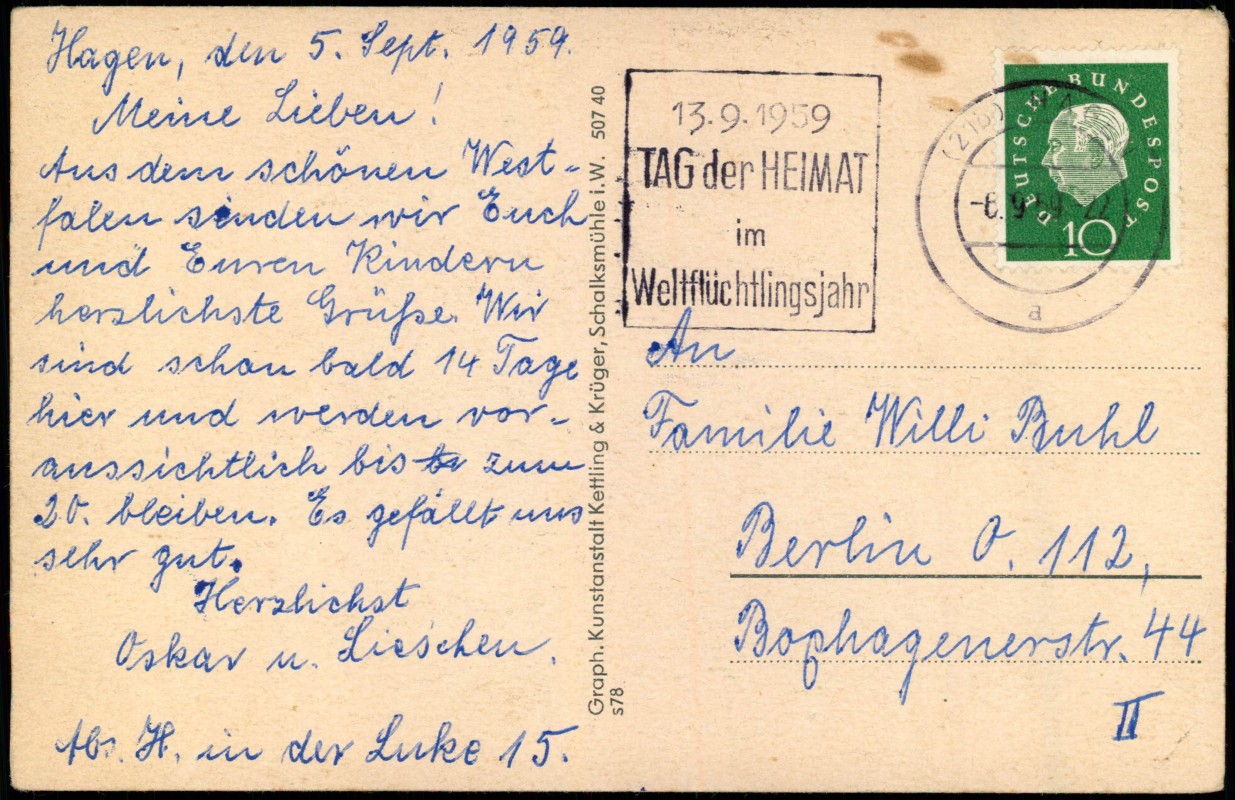 Hagen, den 5. Sept. 1959.
Meine Lieben!
Aus dem schönen West-
falen senden wir Euch
und Euren Kindern
herzlichste Grüße. Wir
sind schon bald 14 Tage
hier und werden vor-
aussichtlich bis zum
20. bleiben. Es gefällt uns
sehr gut.
Herzlichst
Oskar u. Lieschen.
Abs. H. in der Luke 15.
Graph. Kunstanstalt Kettling & Krüger, Schalksmühle i. W. 507 40
s78
13.9.1959
TAG der HEIMAT
im
Weltflüchtlingsjahr
(21b)
-6.9.59-22
a
DEUTSCHE BUNDESPOST
10
An
Familie Willi Buhl
Berlin O. 112,
Bophagenerstr. 44
II